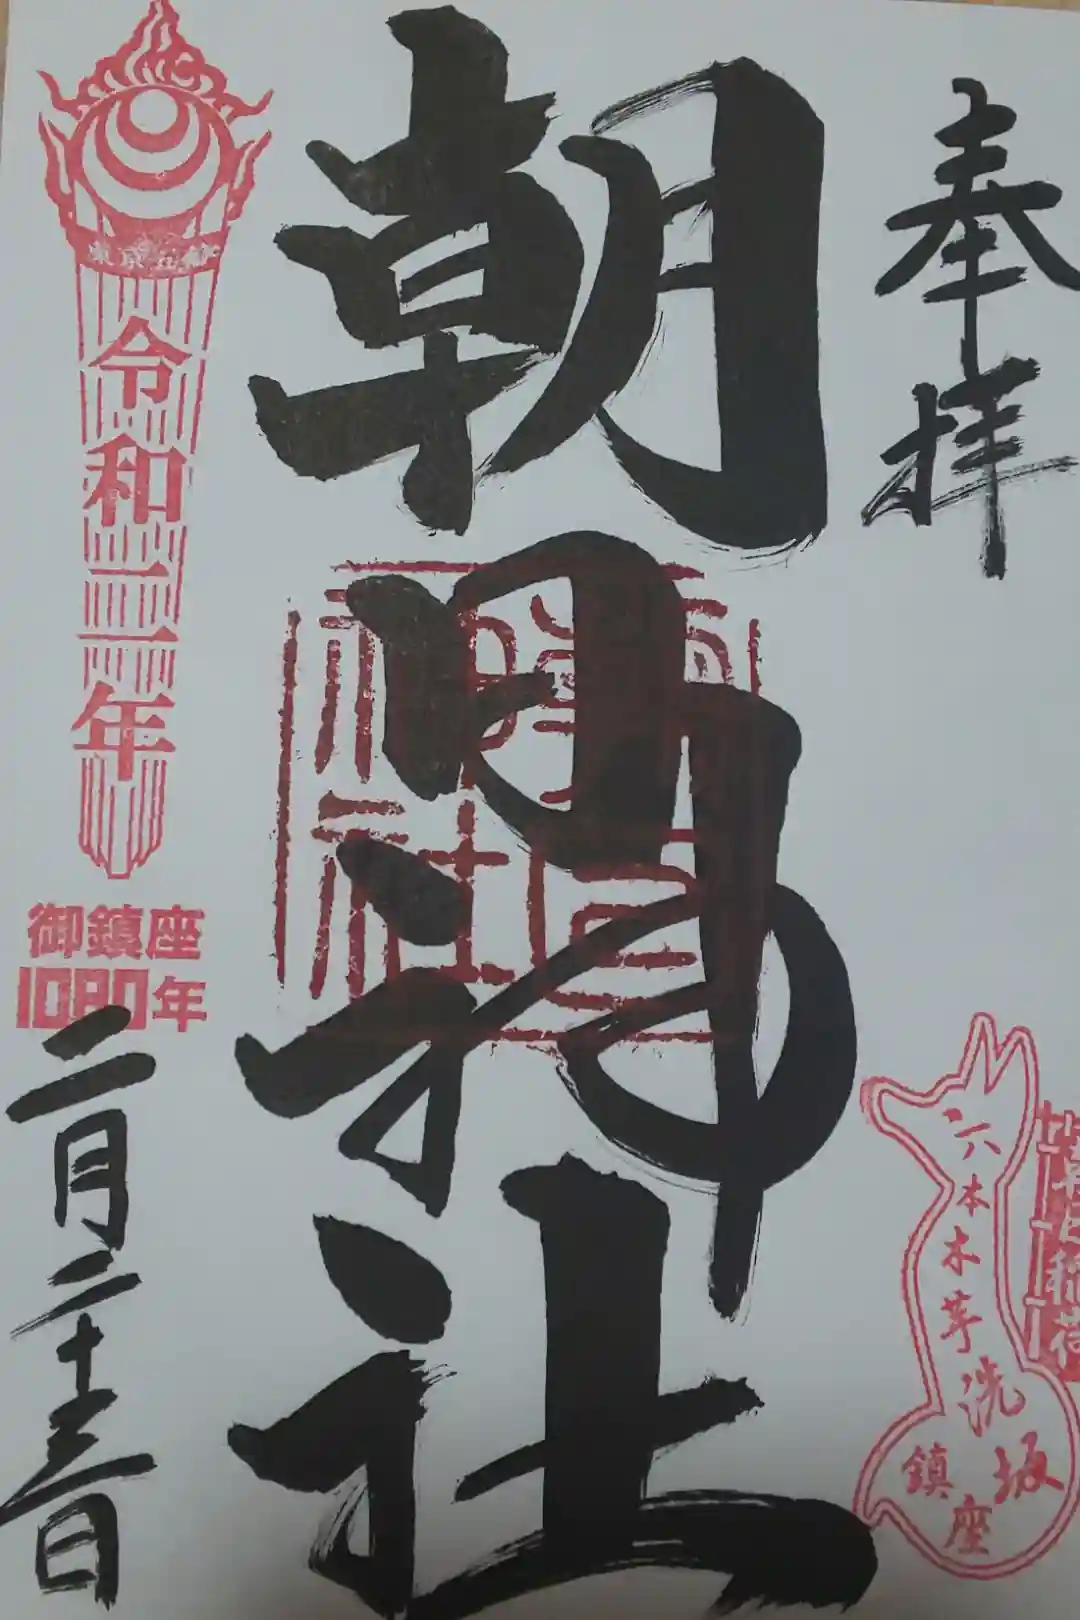 奉拝
六本木芋洗坂
鎮座
朝日神社
朝日神社
令和二年
御鎮座
1080年
二月二十三日